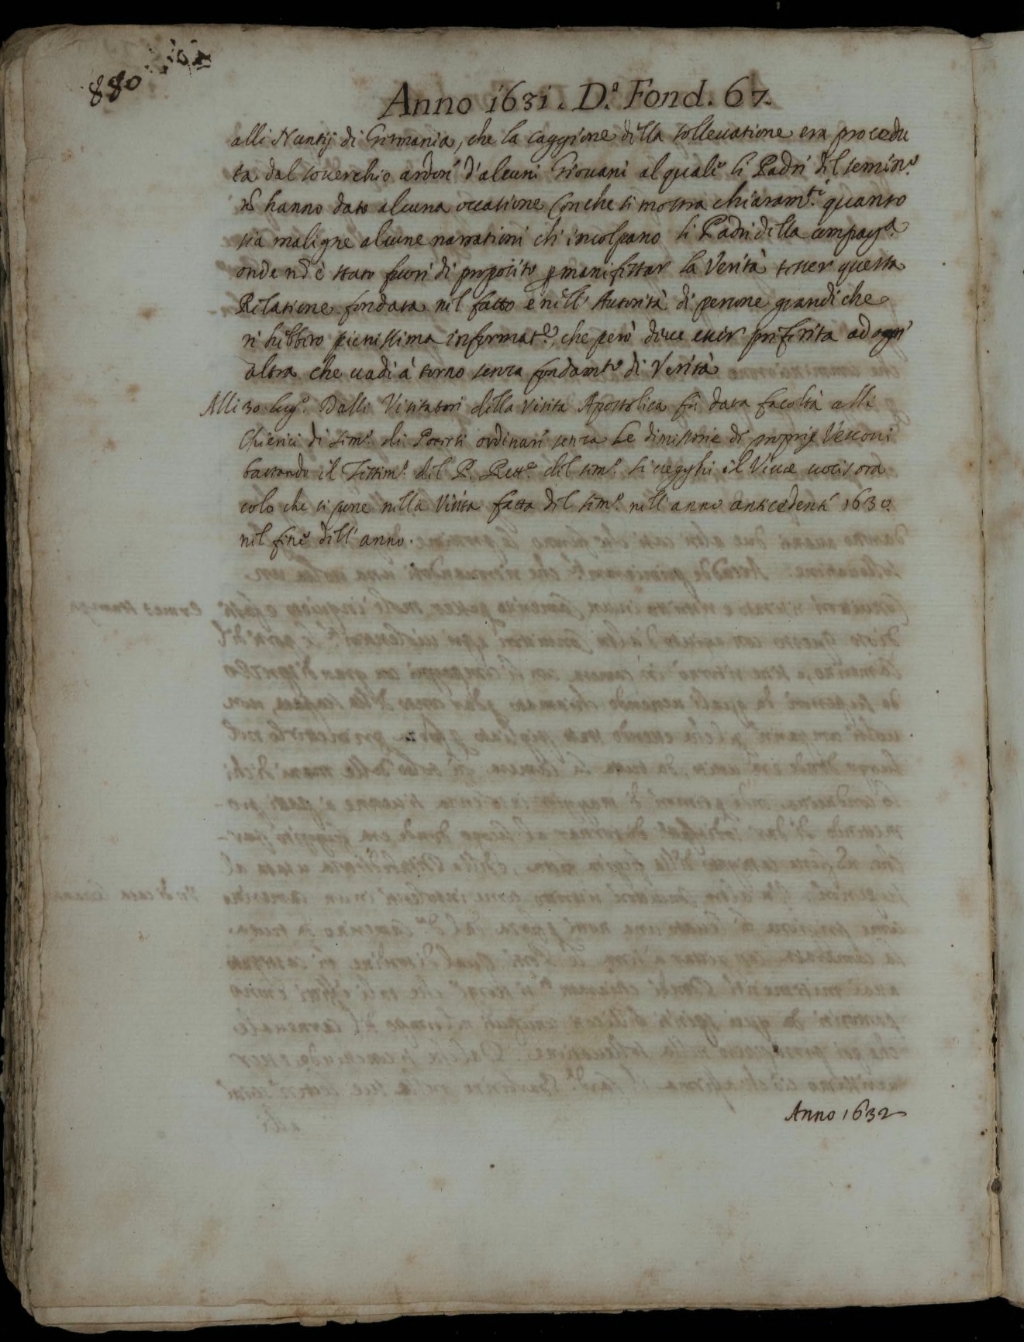 880
Anno 1631. D.º Fond. 67.
alli Nuntij di Germania, che la caggione della sollevatione era procedu
ta dal soverchio ardore d'alcuni Giovani al quale li Padri del semin.º
nõ hanno dato alcuna occasione Con che si mostra chiaram.te quanto
sia maligne alcune narrationi ch'incolpano li Padri della compag.ª
onde nõ è stato fuori di proposito p manifestar la Verità tesser questa
Relatione fondata nel fatto e nell' Autorità di persone grandi che
n'hebbero pienissima informat.e, che però deve esser preferita ad ogni
altra che vadi à torno senza fondam.to di Verità
Alli 30 Dalli Visitatori della Visita Apostolica fù data facoltà alli
Chierici di sem.º di ordinarsi senza le dimissorie di proprij Vescovi
bastando il Testim.º del P. Rett.e del sem.º il Vivae vocis ora
colo che si pone nella Visita fatta del sem.º nell'anno antecedente 1630
nel fine dell'anno.
Anno 1632